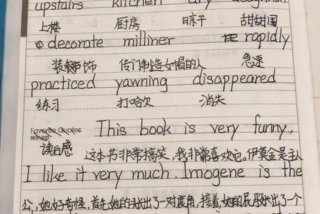 upstairs kitchen dry
上楼 厨房 日 甜甜圈
decorate milliner rapidly
装 饰 专门制造女帽的人 急速
practiced yawning disappeared
练习 打哈欠 消失
This book is very funny.
读后感 这本书非常搞笑，我非常喜欢它，伊莫金是主人
I like it very much. Imogene is the
公，她好奇怪，首先她的头出了一对鹿角，接着，她的屁股出了一个